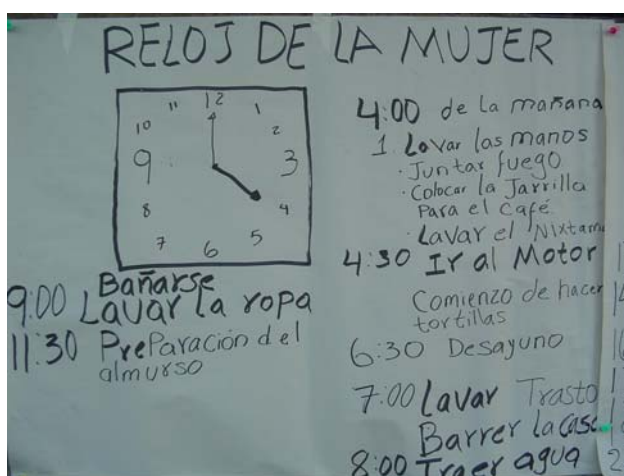 RELOJ DE LA MUJER
12
11
1
10
2
9
3
8
4
7
5
6
9:00 Bañarse
Lavar la ropa
11:30 Preparación del
almurso
4:00 de la mañana
1. Lavar las manos
· Juntar fuego
· Colocar la Jarrilla
Para el café
· Lavar el Nixtam
4:30 Ir al Motor
Comienzo de hacer
tortillas
6:30 Desayuno
7:00 Lavar Trasto
Barrer la casa
8:00 Traer agua